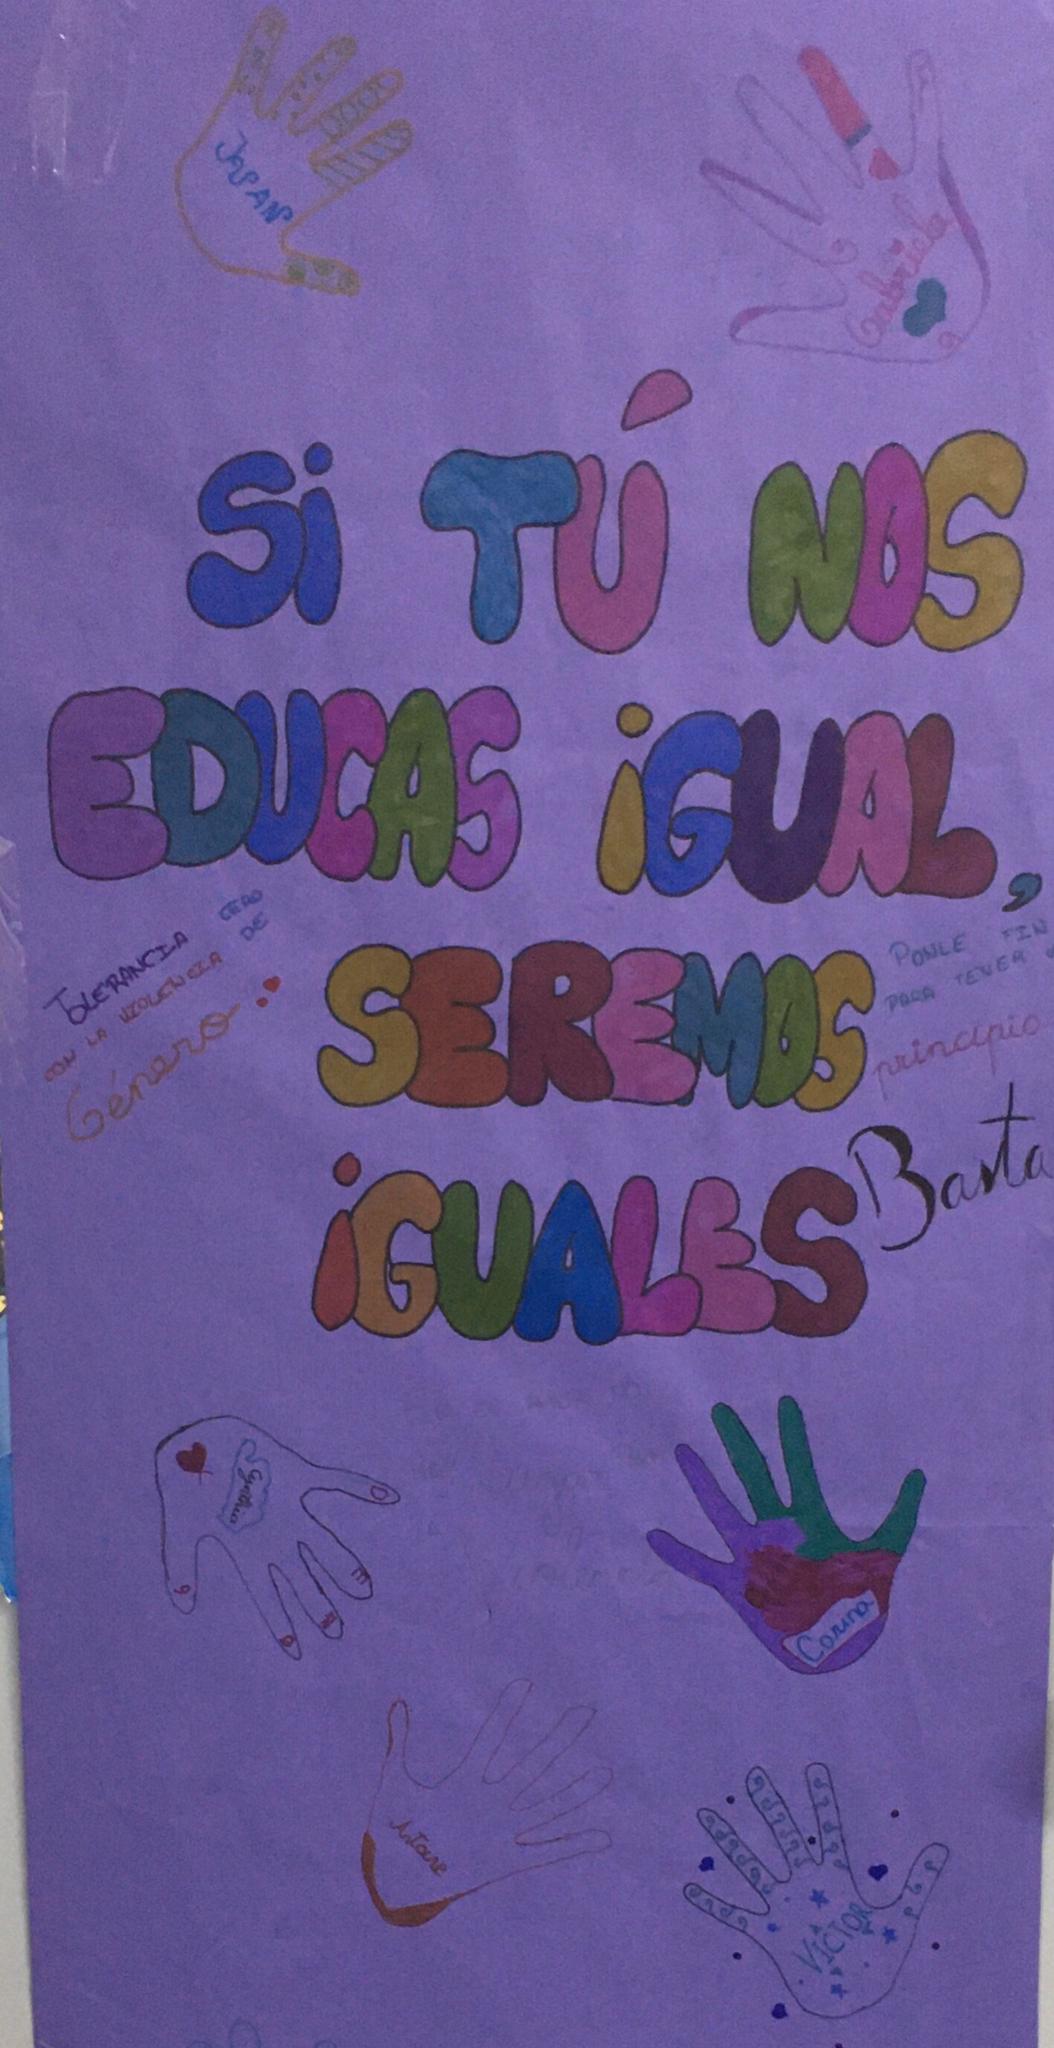 Gabriela
SI TÚ NOS
EDUCAS IGUAL,
TOLERANCIA CERO
CON LA VIOLENCIA DE
Género
SEREMOS
PONLE FIN
PARA TENER
principio
IGUALES
Basta
Corina
VICTOR